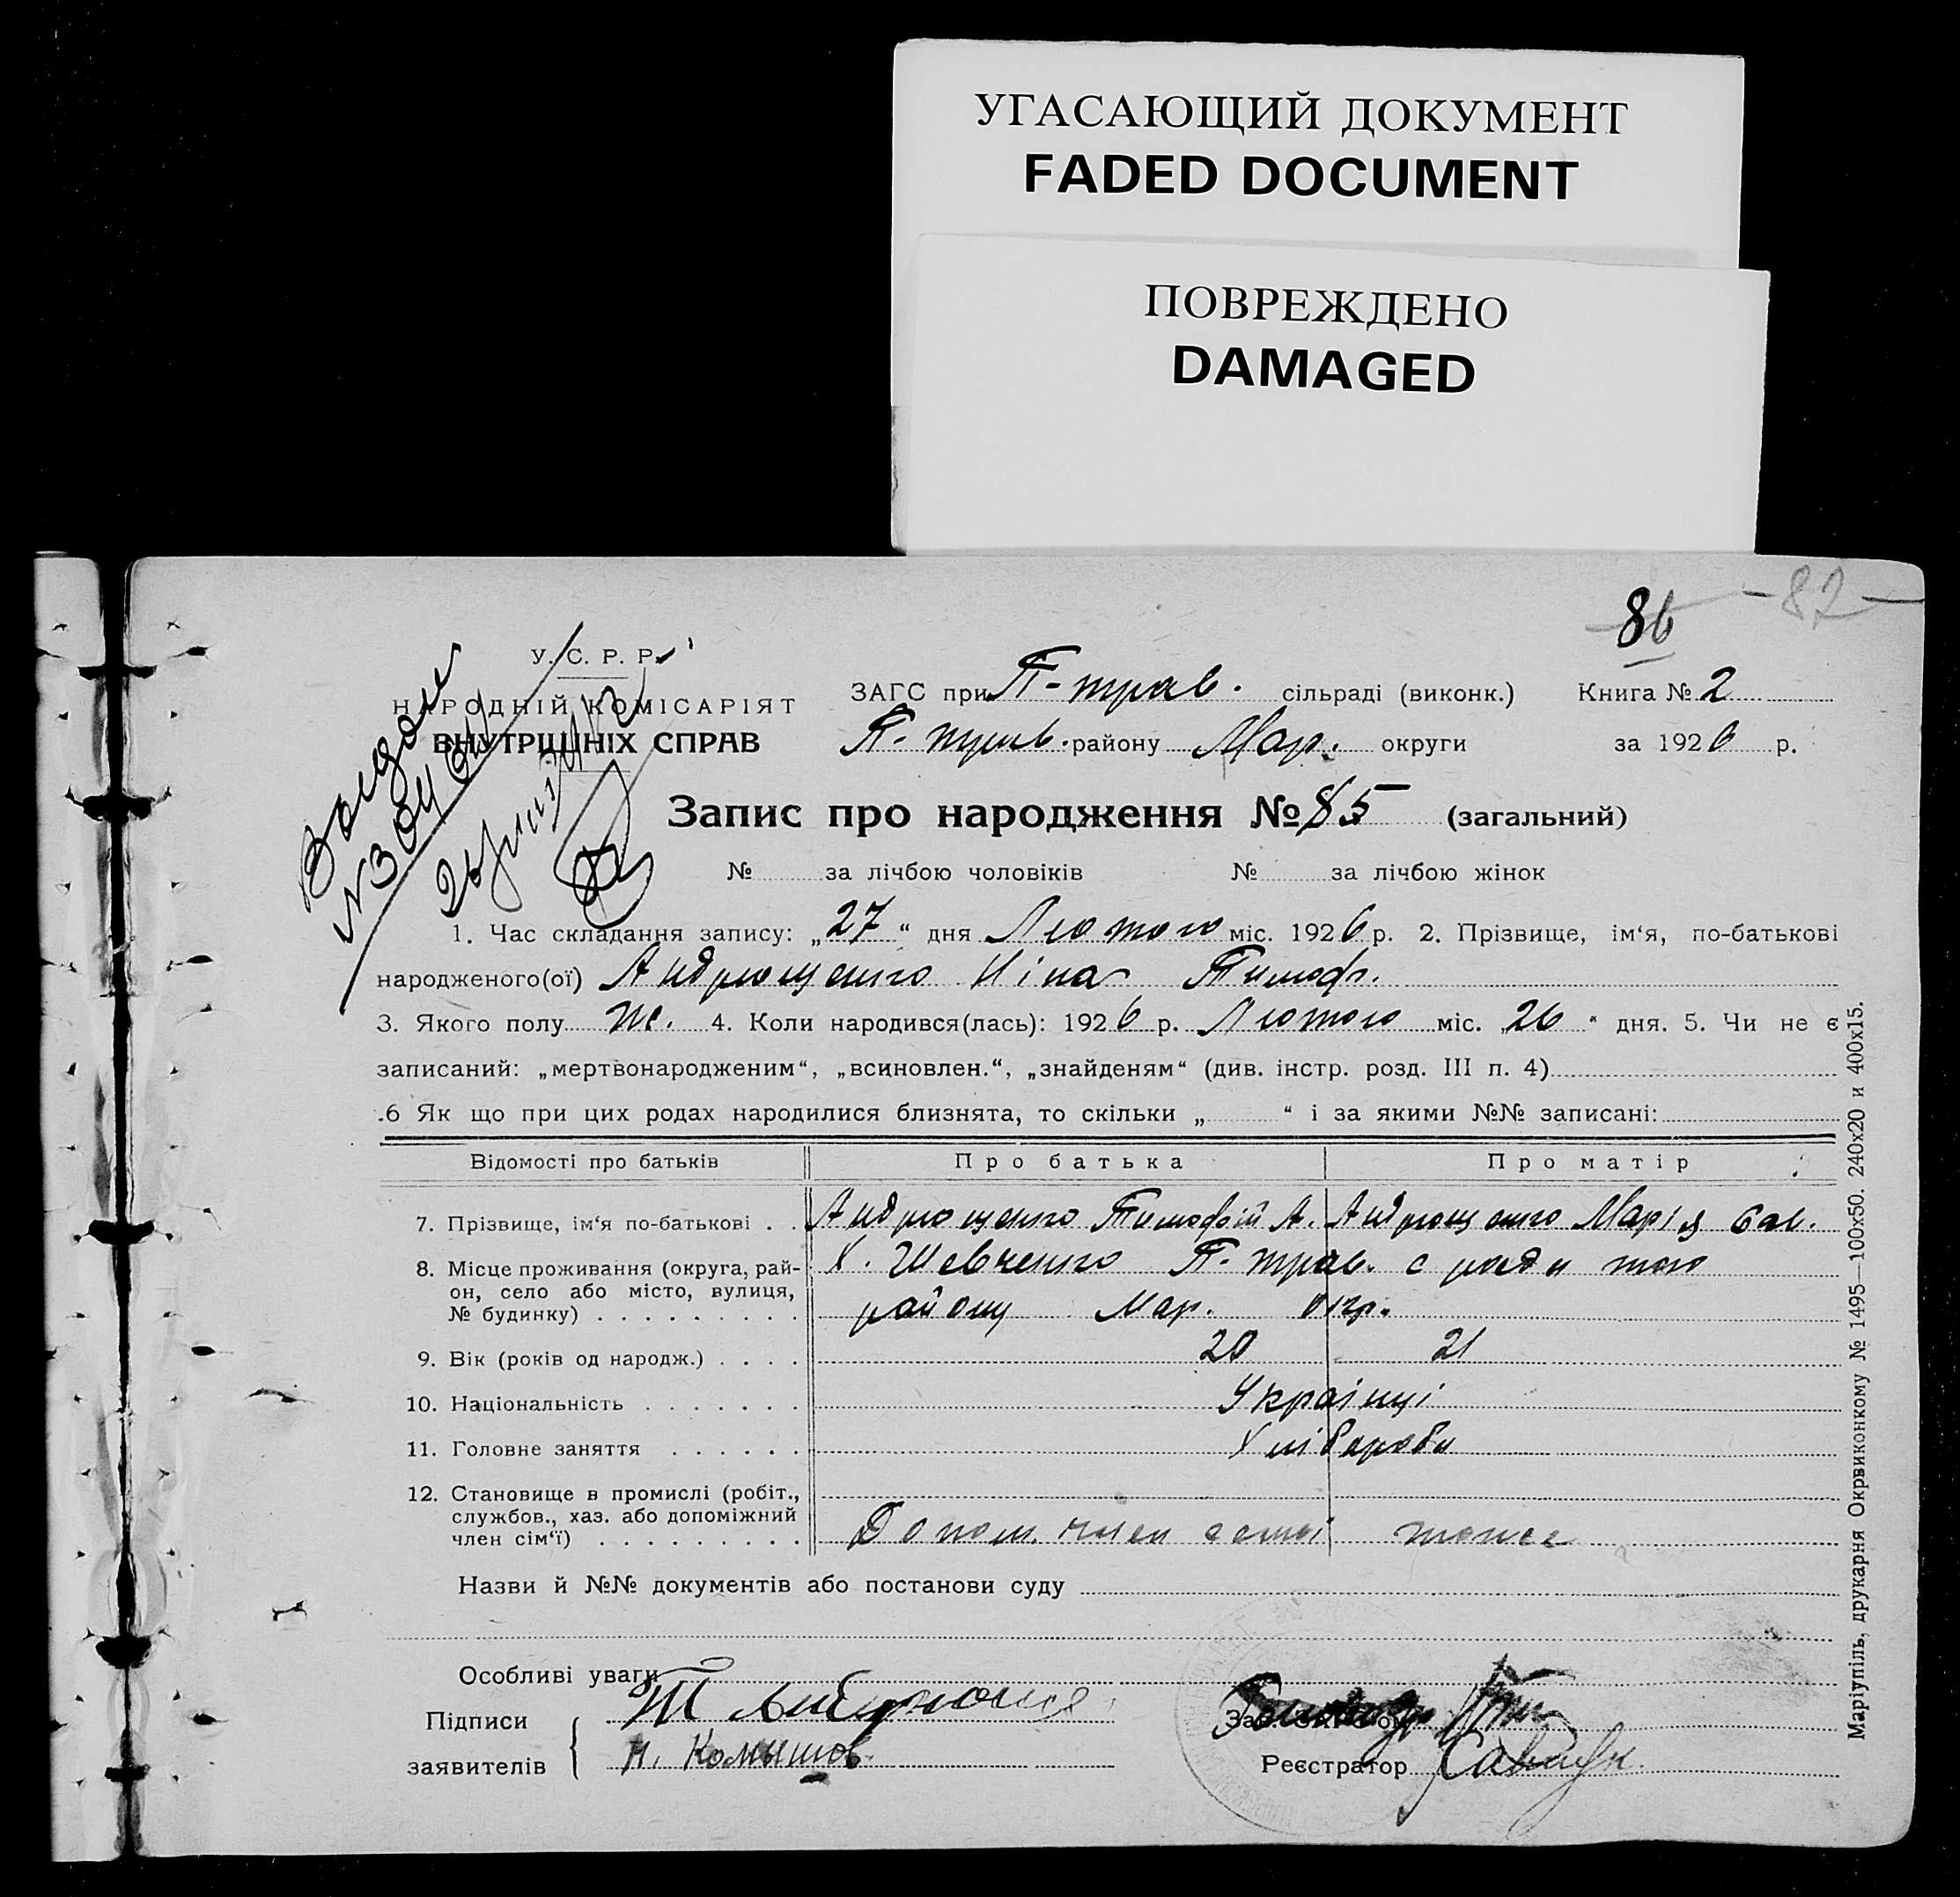 УГАСАЮЩИЙ ДОКУМЕНТ
FADED DOCUMENT
ПОВРЕЖДЕНО
DAMAGED
86 -82-
У. С. Р. Р.
НАРОДНІЙ КОМІСАРІЯТ
ВНУТРІШНІХ СПРАВ
ЗАГС при П-трав. сільраді (виконк.) Книга № 2
району Мар. округи за 1926 р.
Запис про народження № 85 (загальний)
№ за лічбою чоловіків № за лічбою жінок
1. Час складання запису: „27“ дня Лютого міс. 1926 р. 2. Прізвище, ім‘я, по-батькові
народженого(ої) Андрющенко Ніна Тимоф.
3. Якого полу ж. 4. Коли народився(лась): 1926 р. Лютого міс. „26“ дня. 5. Чи не є
записаний: „мертвонародженим“, „всиновлен.“, „знайденям“ (див. інстр. розд. III п. 4)
.6 Як що при цих родах народилися близнята, то скільки „ “ і за якими №№ записані:
Відомості про батьків Про батька Про матір
7. Прізвище, ім‘я по-батькові . . Андрющенко Тимофій А. Андрющенко Марія Сав.
8. Місце проживання (округа, рай-
он, село або місто, вулиця,
№ будинку) . . . . . . . . .
Х. Шевченко П-трав. с ради того
району Мар. окр.
9. Вік (років од народж.) . . . . 20 21
10. Національність . . . . . . . Українці
11. Головне заняття . . . . . . Хлібороби
12. Становище в промислі (робіт.,
службов., хаз. або допоміжний
член сім‘ї) . . . . . . . . .
Допом. член семьі тоже
Назви й №№ документів або постанови суду
Особливі уваги
Підписи
заявителів
Н. Комышов
Реєстратор
Маріупіль, друкарня Окрвиконкому № 1495—100х50. 240х20 и 400х15.